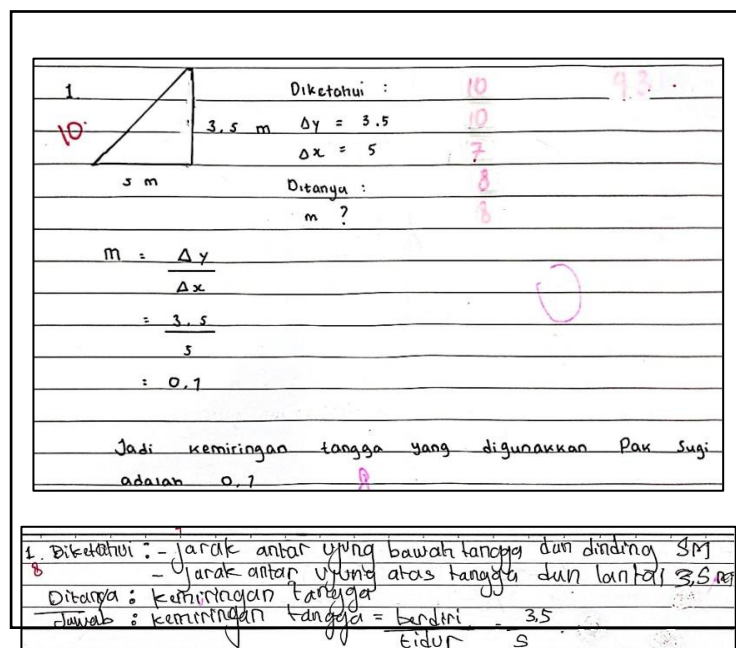 1.
Diketahui :
10
9.3
10
3.5 m
Δy = 3.5
10
Δx = 5
7
5 m
Ditanya :
8
m ?
8
m = Δy
Δx
= 3.5
5
= 0.7
Jadi kemiringan tangga yang digunakkan Pak Sugi
adalah 0.7
1. Diketahui : - Jarak antar ujung bawah tangga dan dinding 5M
8
- Jarak antar ujung atas tangga dan lantai 3,5 m
Ditanya : kemiringan tangga
Jawab : kemiringan tangga = berdiri = 3,5
tidur 5